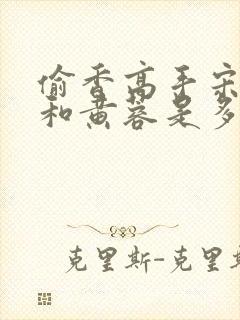 偷香高手宋
和黄蓉是多
克里斯-克里斯